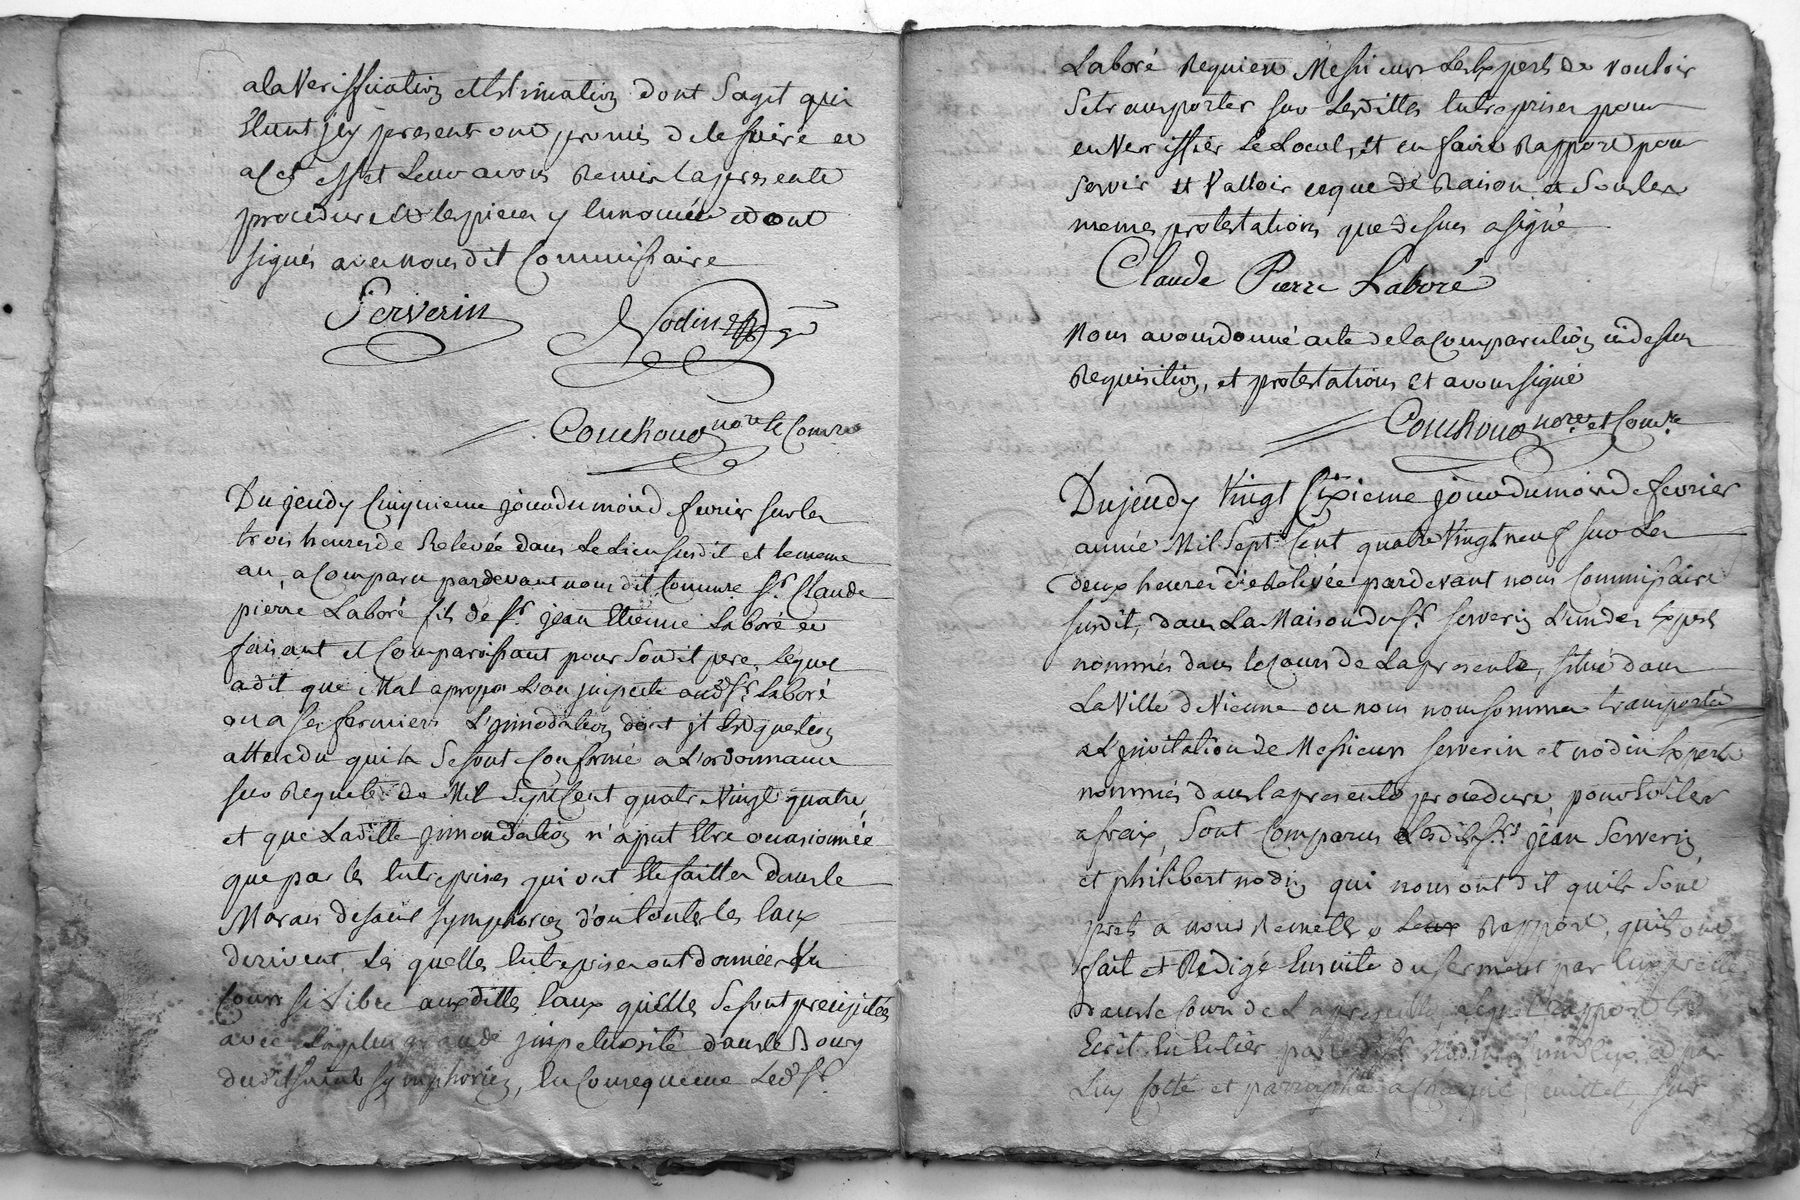 a la veriffication et Estimation dont Sagit qui
Etant jcy presents ont promis de le faire et
a Cet effet Leur avons Remis la presente
procedure et les pieces y Enoncées et ont
signés avec nous dit Commissaire
Serverin Nodin
Couchoud nore et Comre
Du jeudy Cinquieme jour du mois de fevrier sur les
trois heures de Relevée dans Le Lieu susdit et le meme
an, a Comparu pardevant nous dit Commre Sr. Claude
pierre Laboré fils de Sr. jean Etienne Laboré en
faisant et Comparoissant pour Sondit pere, Lequel
a dit que Mal apropos L'on jmpute audt Sr. Laboré
ou a ses fermiers L'jnnodation dont jl Est question
attendu quils Se sont Conformé a L'ordonnance
sur Requete de Mil Sept Cent quatre Vingt quatre
et que Laditte jnnondation n'a put Etre ocasionnée
que par les Entreprises qui ont Eté faittes dans le
Marais de saint symphorien d'ou toutes les Eaux
derivent, Les quelles Entreprises ont données Un
Cours si Libre auxdittes Eaux quelles Se sont precipitées
avec La plus grande jmpetuosité dans le Bourg
dudit saint symphorien, En Consequence Ledt Sr.
Laboré Requiert Messieurs Les Experts de vouloir
Se transporter sur Lesdittes Entreprises pour
en Veriffier Le Local, Et en faire Rapport pour
servir Et Valloir ce que de Raison et Sous les
memes protestations que dessus a signé
Claude Pierre Laboré
Nous avons donné acte de la Comparution cidessus
Requisition, et protestations Et avons signé
Couchoud nore et Comre
Du jeudy Vingt Sixieme jour du mois de fevrier
année Mil Sept Cent quatre Vingt neuf sur Les
deux heures de Relevée pardevant nous Commissaire
susdit, dans La Maison du Sr. Serverin L'un des Experts
nommés dans le Cours de La presente, situé dans
La Ville de Vienne ou nous nous sommes transporté
a L'jnvitation de Messieurs Serverin et nodin Experts
nommés dans la presente procedure, pour Eviter
a fraix, Sont Comparus Lesdits Srs. jean Serverin
et philibert nodin qui nous ont dit quils Sont
prets a nous Remettre Leur Rapport, quils ont
fait et Redigé Ensuite du serment par Eux preté
dans le cours de La presente, Lequel Rapport Est
Ecrit En Entier par ledit Sr. Nodin L'un d'eux, et par
Luy Cotté et parraphé a chaque feuillet, sur